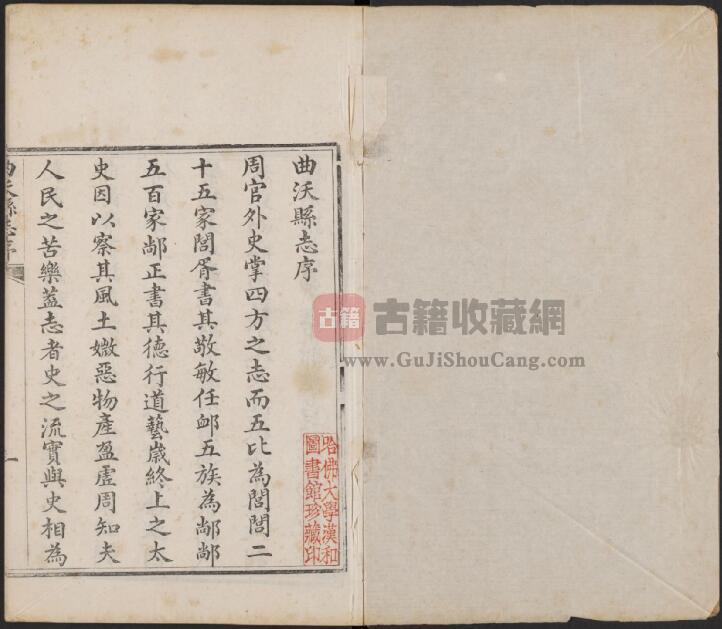 曲沃縣志序
周官外史掌四方之志而五比為閭閭二
十五家閭胥書其敬敏任衈五族為鄁鄁
五百家鄁正書其德行道藝歲終上之太
史因以察其風土媺惡物產盈虛周知夫
人民之苦樂蓋志者史之流實與史相為
曲沃縣志序
一
哈佛大學漢和
圖書館珍藏印
古籍
古籍收藏網
www.GuJiShouCang.com